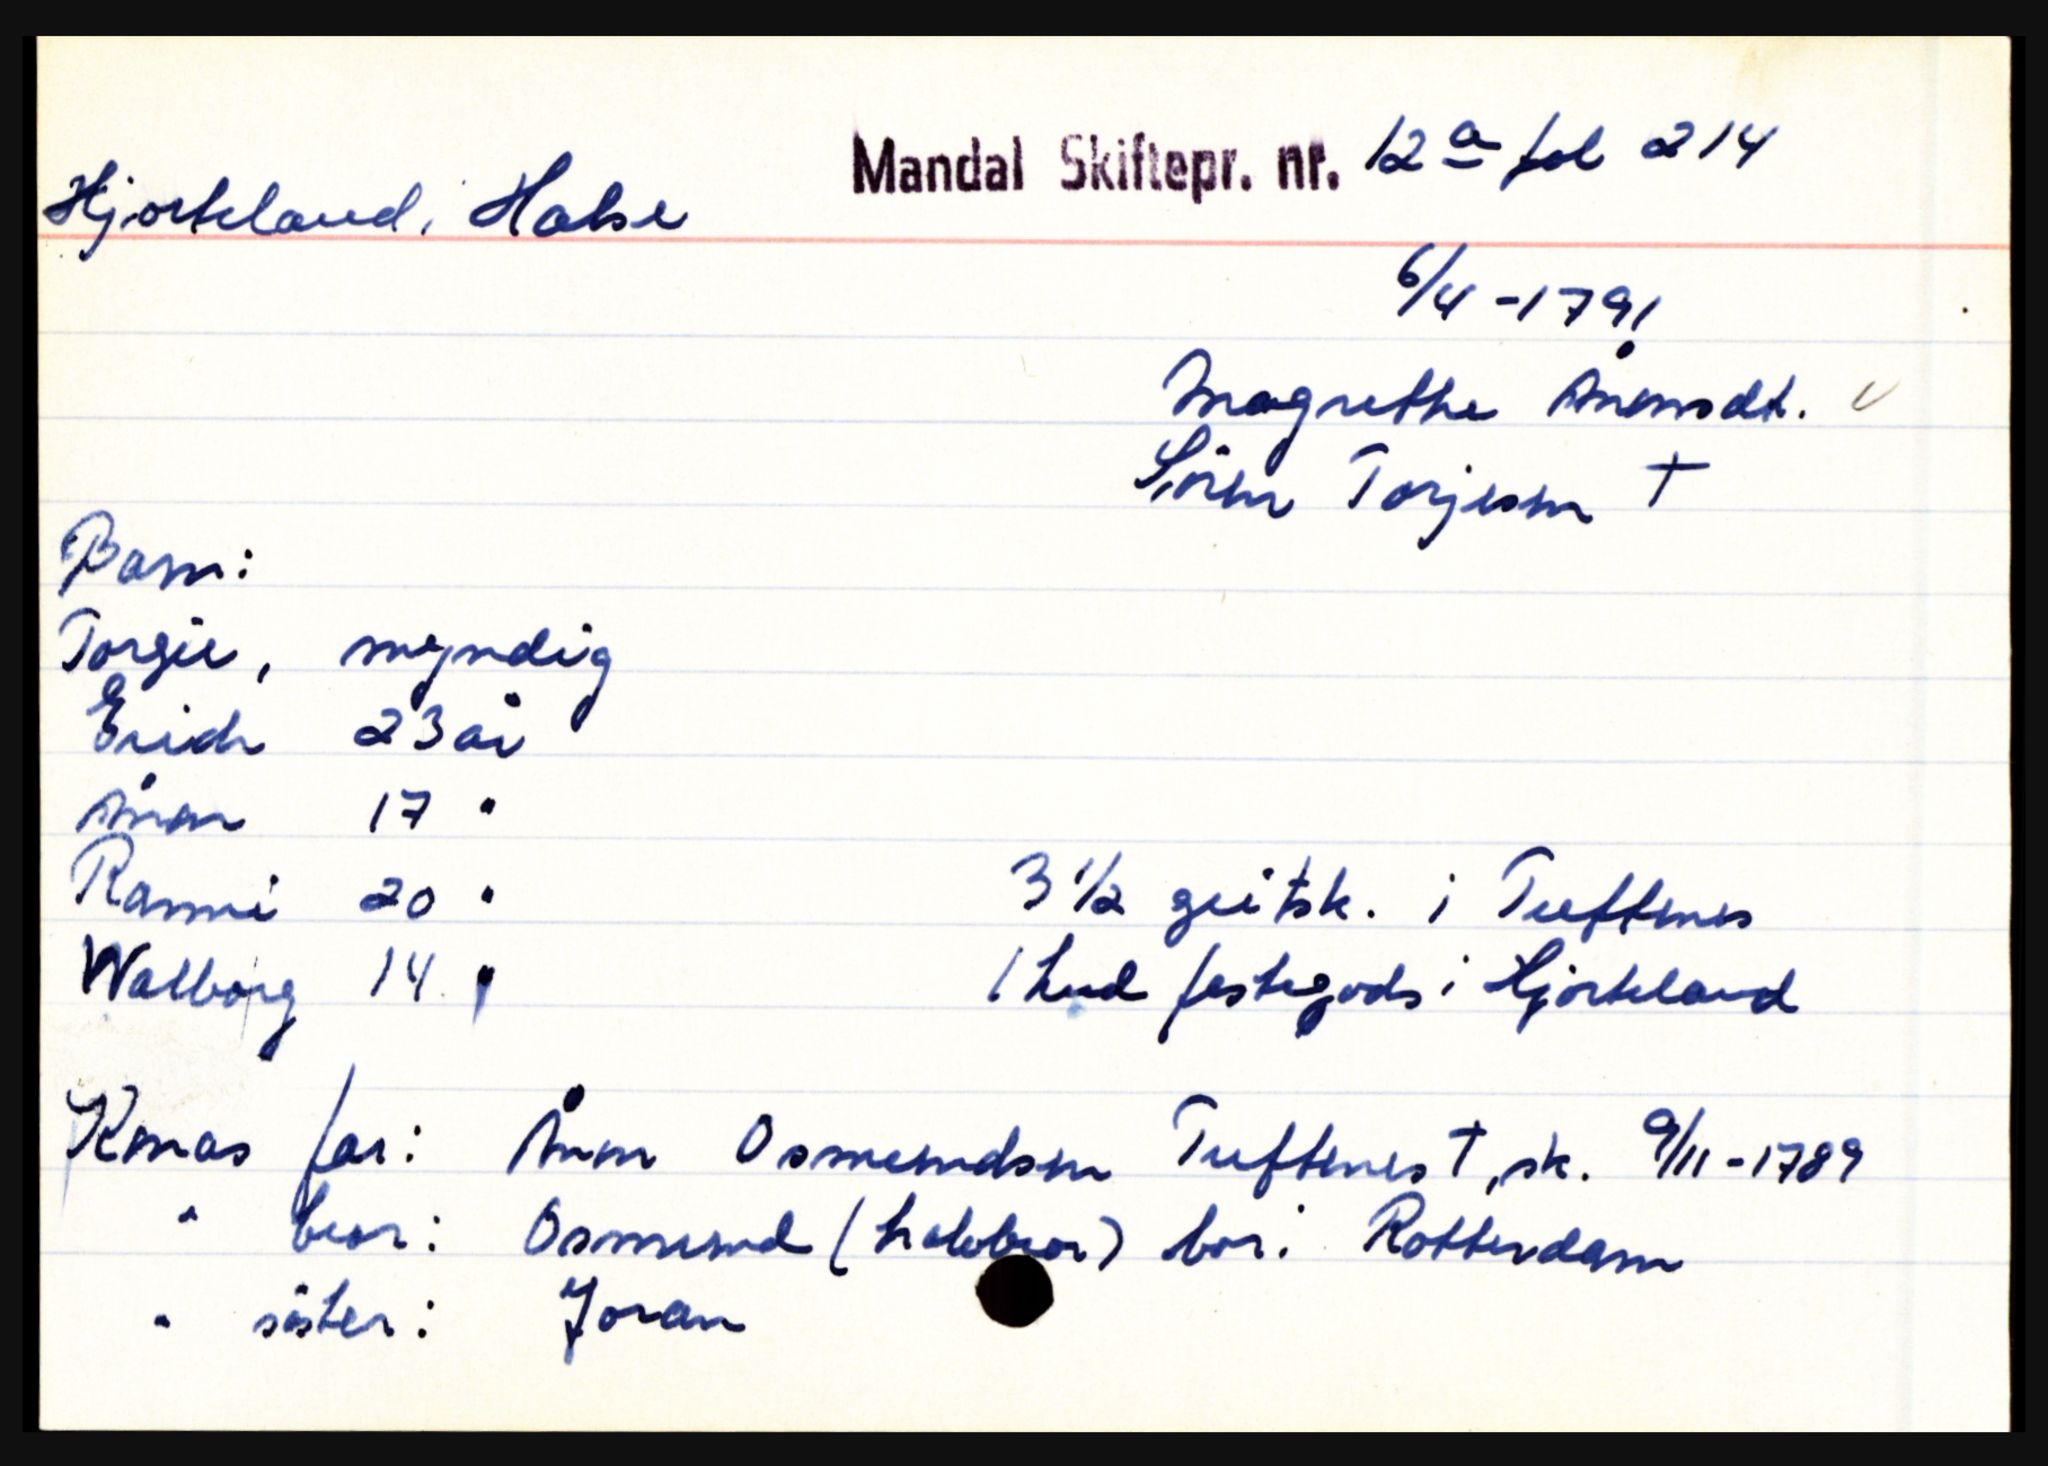 Mandal Skiftepr. nr. 12a fol 214
Hjorteland, Halse
6/4-1791
Magrethe Ånensdt.
Sören Torjesen †
Barn:
Torgie, myndig
Erich 23 år
Ånen 17 "
Ranni 20 "
3 1/2 geitsk. i Tuftenes
Walborg 14 "
1 hud festegods i Hjorteland
Konas far: Ånen Osmundsen Tuftenes †, sk. 9/11-1789
" bror: Osmund (halvbror) bor i Rotterdam
" söster: Joran